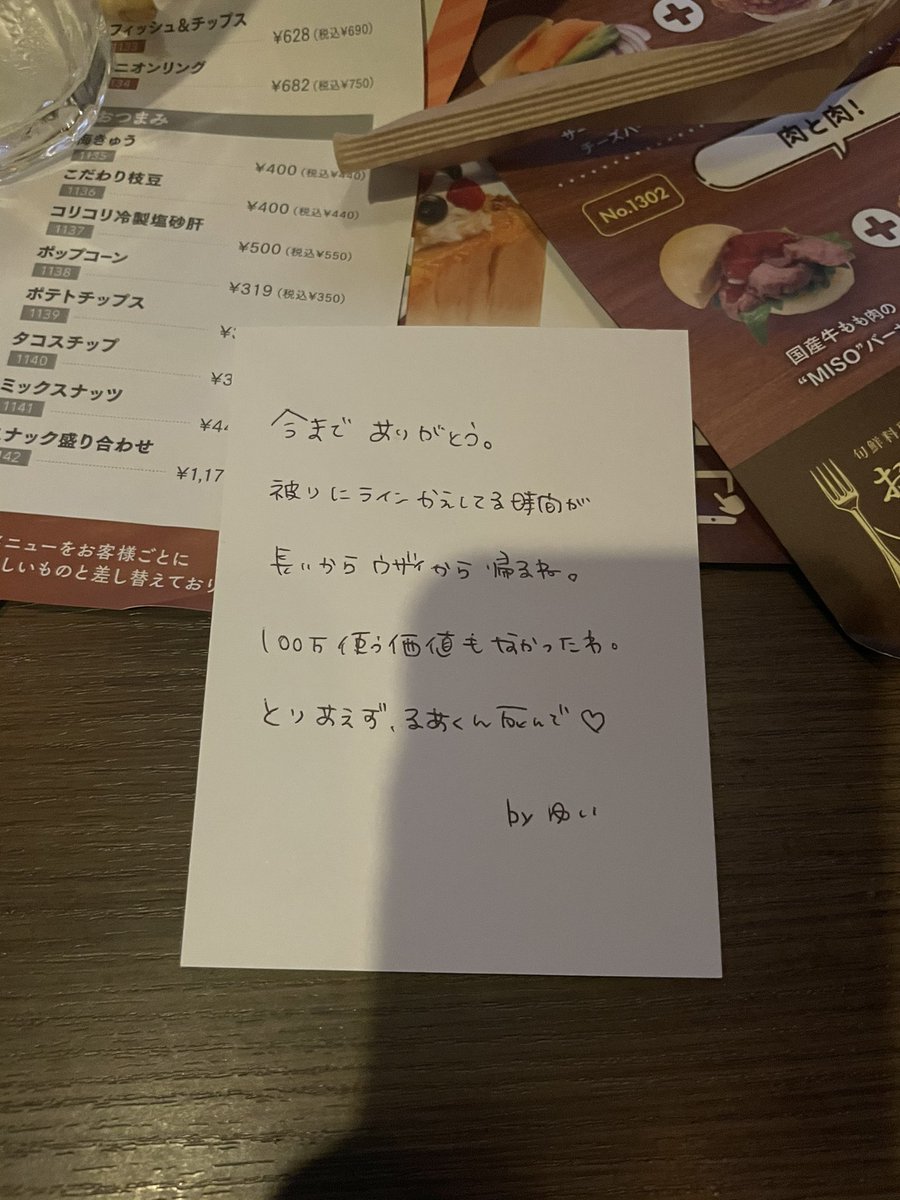 フィッシュ&チップス
1133
¥628(税込¥690)
ニオンリング
34
¥682(税込¥750)
おつまみ
梅きゅう
1135
¥400(税込¥440)
こだわり枝豆
1136
¥400(税込¥440)
コリコリ冷製塩砂肝
1137
¥500(税込¥550)
ポップコーン
1138
¥319(税込¥350)
ポテトチップス
1139
タコスチップ
1140
¥3
ミックスナッツ
1141
¥44
ナック盛り合わせ
142
¥1,17
メニューをお客様ごとに
しいものと差し替えており
サー
チーズバ
肉と肉!
No.1302
国産牛もも肉の
"MISO"バーガ
旬鮮料
お
今まで ありがとう。
被りにラインかえしてる時間が
長いからウザイから帰るね。
100万使う価値もなかったわ。
とりあえず、るあくん死んで♡
by ゆい